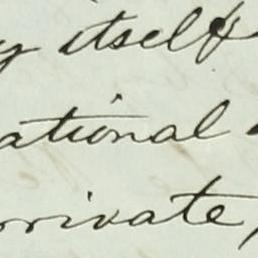 y itself
ational
rivate,